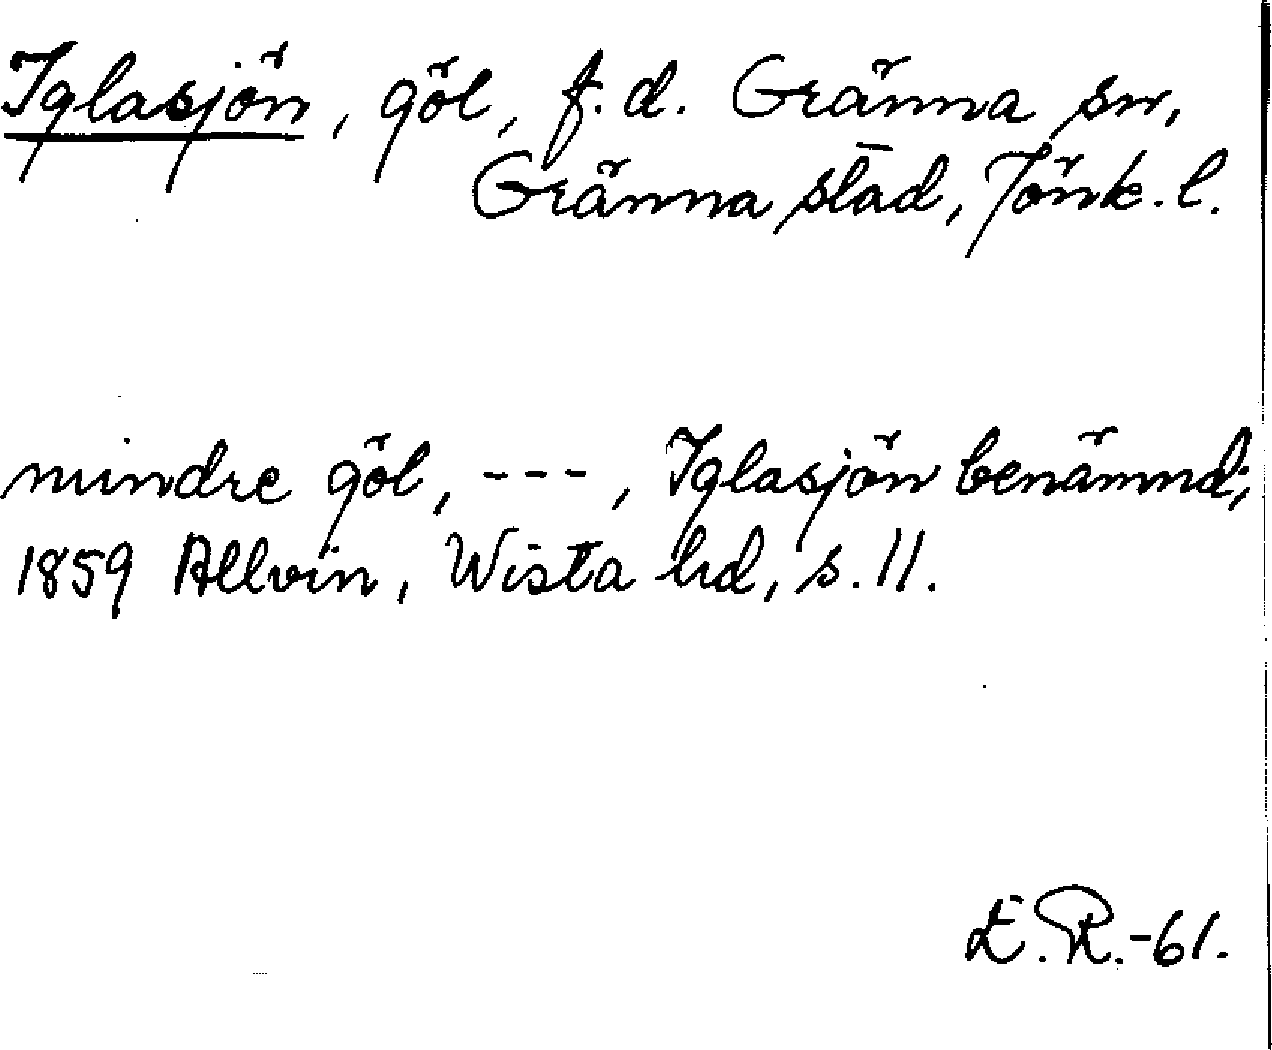 Iglasjön, göl, f.d. Gränna sn,
Gränna stad, Jönk.l.
mindre göl, ---, Iglasjön benämnd;
1859 Allvin, Wista hd, s.11.
E.R.-61.